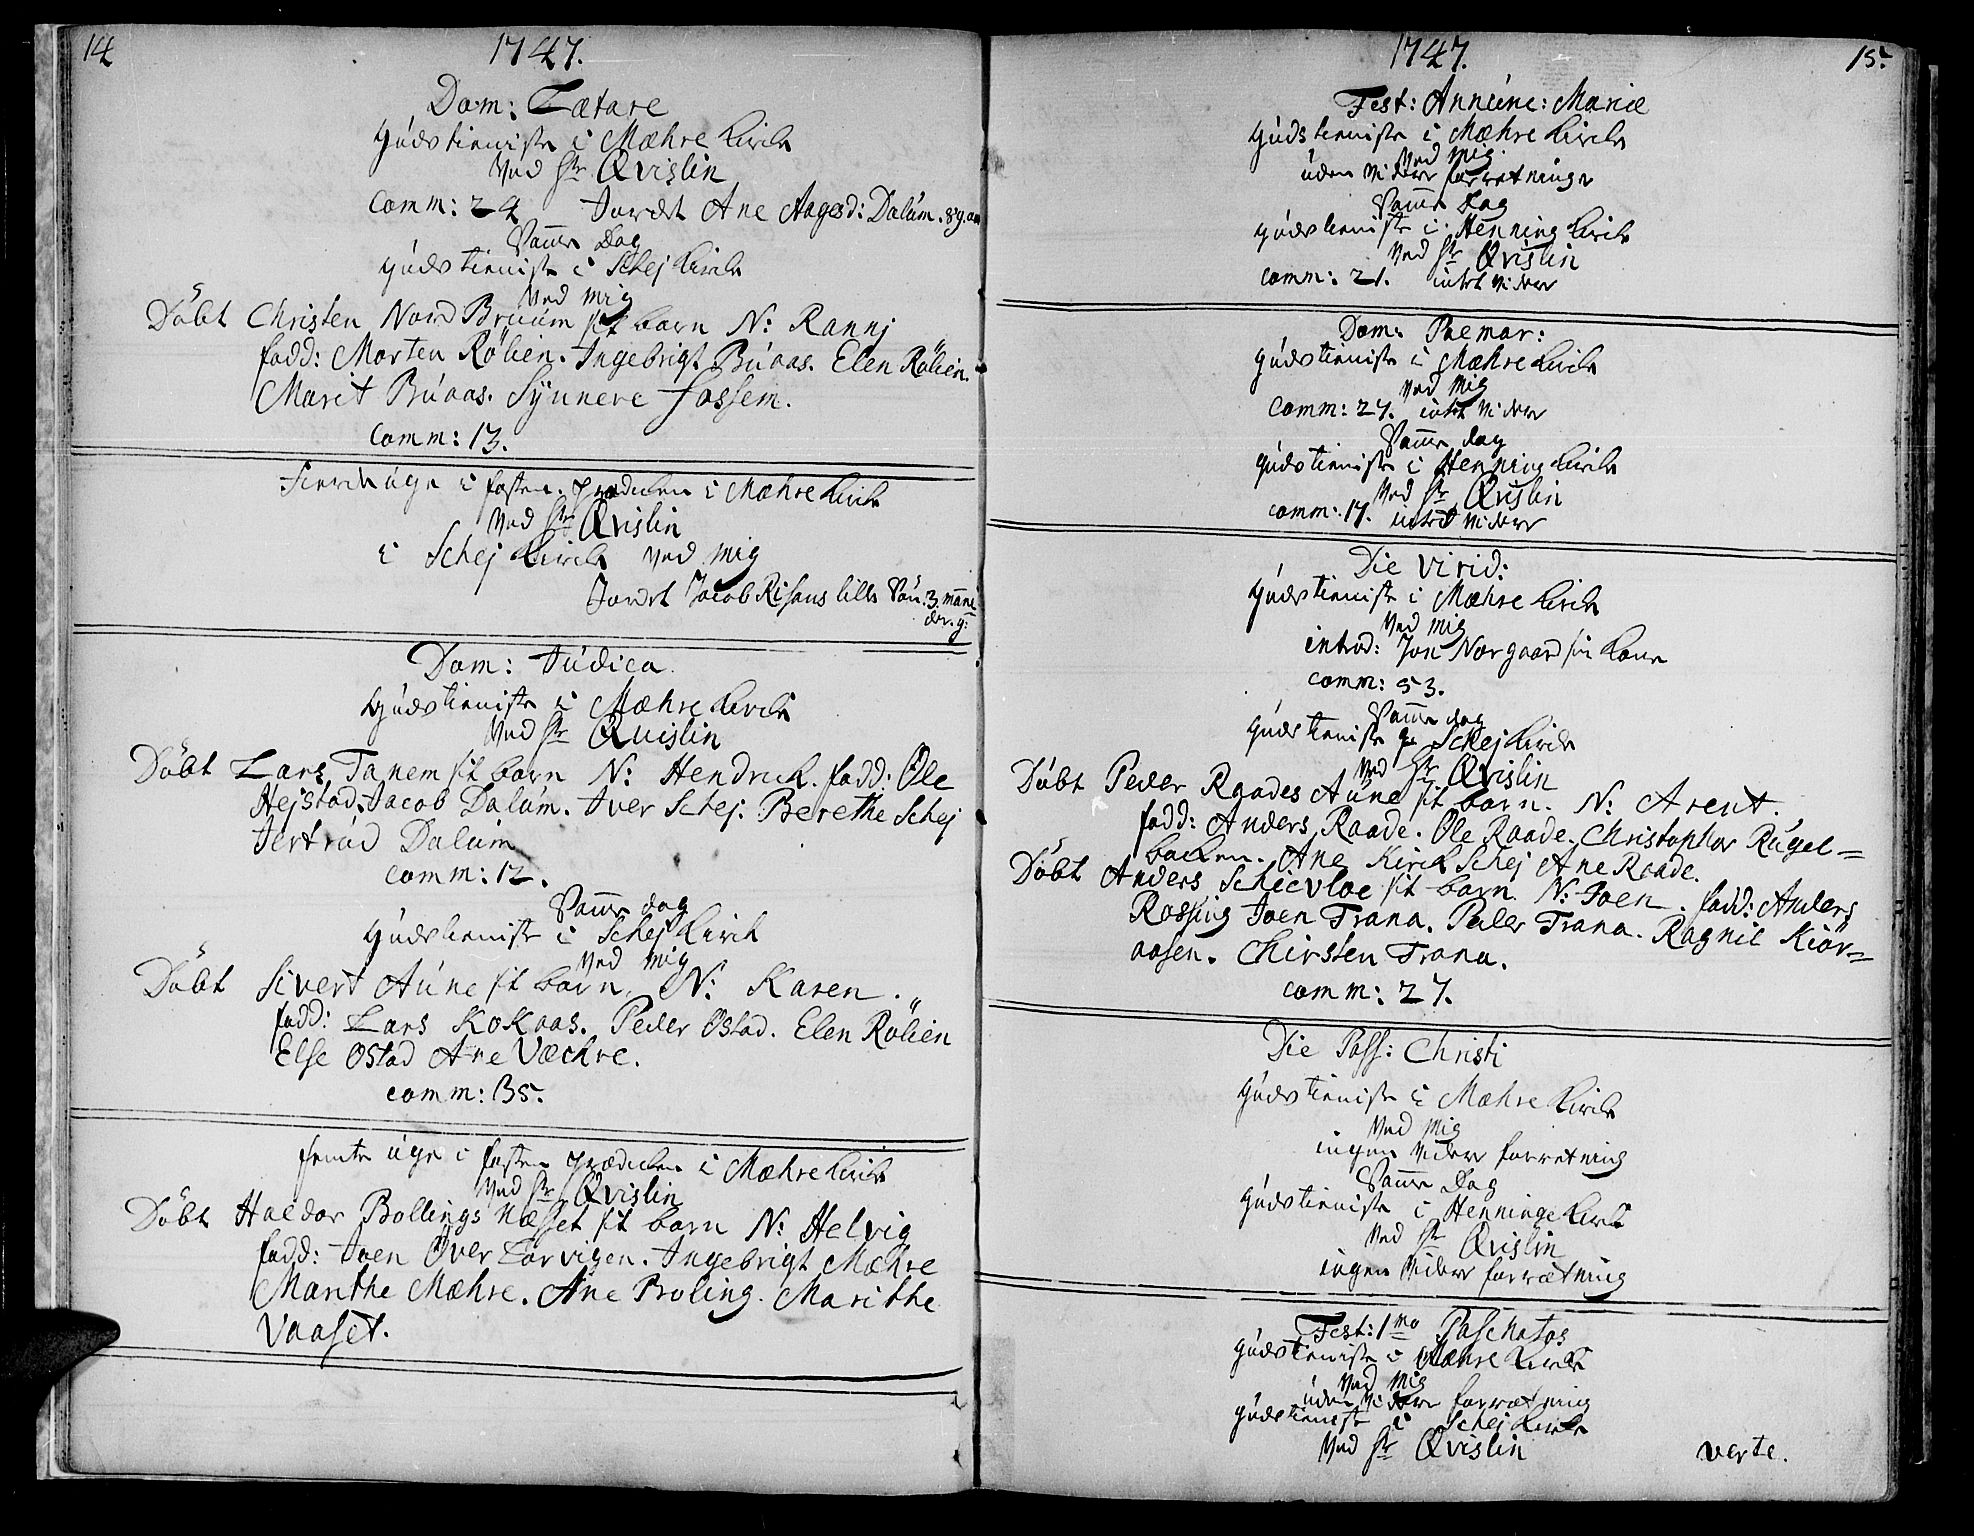 14
1747.
Dom: Lætare
Gúdstieniste i Mæhre Kirche
Ved Hr Qvislin
Comm: 24 Jordet Ane Aagesd: Dalúm. 89. aar
Samme Dag
Gúdstieniste i Schej Kirche
Ved mig
Döbt Christen Nord Brúúm sit barn N: Rannj
fadd: Morten Rölien. Ingebrigt Búaas. Elen Rölien.
Marit Búaas. Synnere fossem.
Comm: 13.
Fierde úge i fasten. Prædichen i Mæhre Kirche
Ved Hr Qvislin
i Schej Kirche ved mig
Jordet Jacob Risaus lille Sön. 3. maane
der. g:
Dom: Júdica
Gúdstieniste i Mæhre Kirche
Ved Hr Qvislin
Döbt Lars Tanem sit barn N: Hendrich. fadd: Ole
Hejstad. Jacob Dalúm. Iver Schej. Berethe Schej
Jertrúd Dalúm
Comm: 12.
Samme dag
Gúdstieniste i Schej Kirch
Ved mig
Döbt Sivert Aúne sit barn. N: Karen.
fadd: Lars Kokaas. Peder Østad. Elen Rölien
Else Østad Ane Væchre.
Comm: 35.
femte úge i fasten Prædichen i Mæhre Kirche
Ved Hr Qvislin
Döbt Haldor Bollings Næsset sit barn N: Helvig
fadd: Joen Över Lorvigen. Ingebrigt Mæhre
Marithe Mæhre. Ane Proling. Marithe
Vaaset.
1747.
15.
Fest: Annúnc: Mariæ
Gúdstieniste i Mæhre Kirche
Ved mig
úden videre forretninge
Samme Dag
Gúdstieniste i Henning Kirche
Ved Hr Qvislin
Comm: 21. intet videre
Dom: Palmar:
Gúdstieniste i Mæhre Kirche
Ved mig
Comm: 27. intet videre
Samme dag
Gúdstieniste i Henning Kirche
Ved Hr Qvislin
Comm: 17. intet videre
Die Virid:
Gúdstieniste i Mæhre Kirch
Ved mig
introd: Jon Norgaard sin Kone
Comm: 53.
Samme dag
Gúdstieniste i Schej Kirche
Ved Hr Qvislin
Döbt Peder Raades Aúne sit barn. N: Arent.
fadd: Anders Raade. Ole Raade. Christopher Rúgel=
bachen. Ane Kirch Schej Ane Raade.
Döbt Anders Schievloe sit barn N: Joen. fadd: Anders
Rossing Joen Trana. Peder Trana. Ragnil Kiör=
aasen. Chirsten Trana.
Comm: 27.
Die Pass: Christi
Gúdstieniste i Mæhre Kirche
Ved mig
ingen videre forretning
Samme Dag
Gúdstieniste i Henninge Kirche
Ved Hr Qvislin
ingen videre forrætning
Fest: 1mo Paschatos
Gúdstieniste i Mæhre Kirche
Ved mig
úden videre forrætning
Gúdstieniste i Schej Kirche
Ved Hr Qvislin
verte.